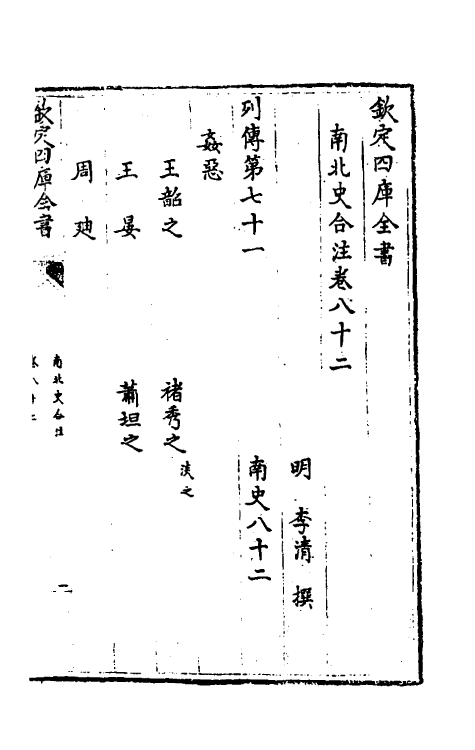 欽定四庫全書
南北史合注卷八十二
明 李清 撰
列傳第七十一 南史八十二
姦惡
王韶之 褚秀之 淡之
王晏 蕭坦之
周迪
欽定四庫全書
南北史合注
卷八十二
一